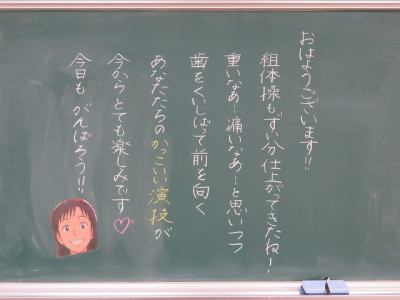 おはようございます!!
組体操もずい分仕上がってきたね!
重いなぁ~痛いなぁ~と思いつつ
歯をくいしばって前を向く
あなたたちのかっこいい演技が
今からとても楽しみです♡
今日も がんばろう!!